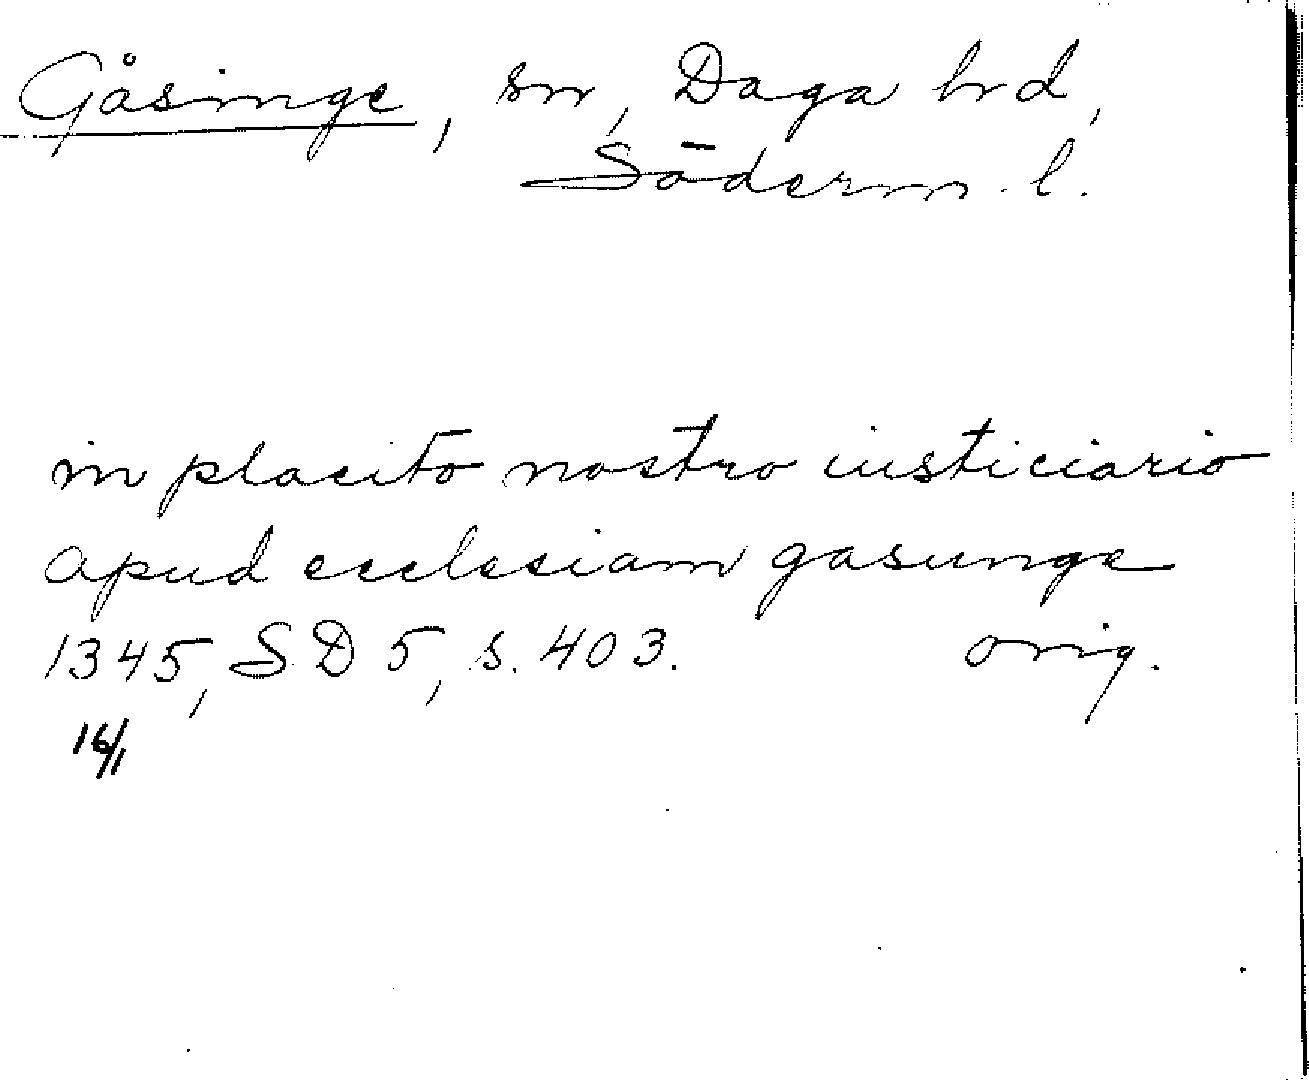 Gåsinge, sn, Daga hd,
Söderm. l.
in placito nostro iusticiario
apud ecclesiam gasunge
1345, SD 5, s. 403. orig.
16/1